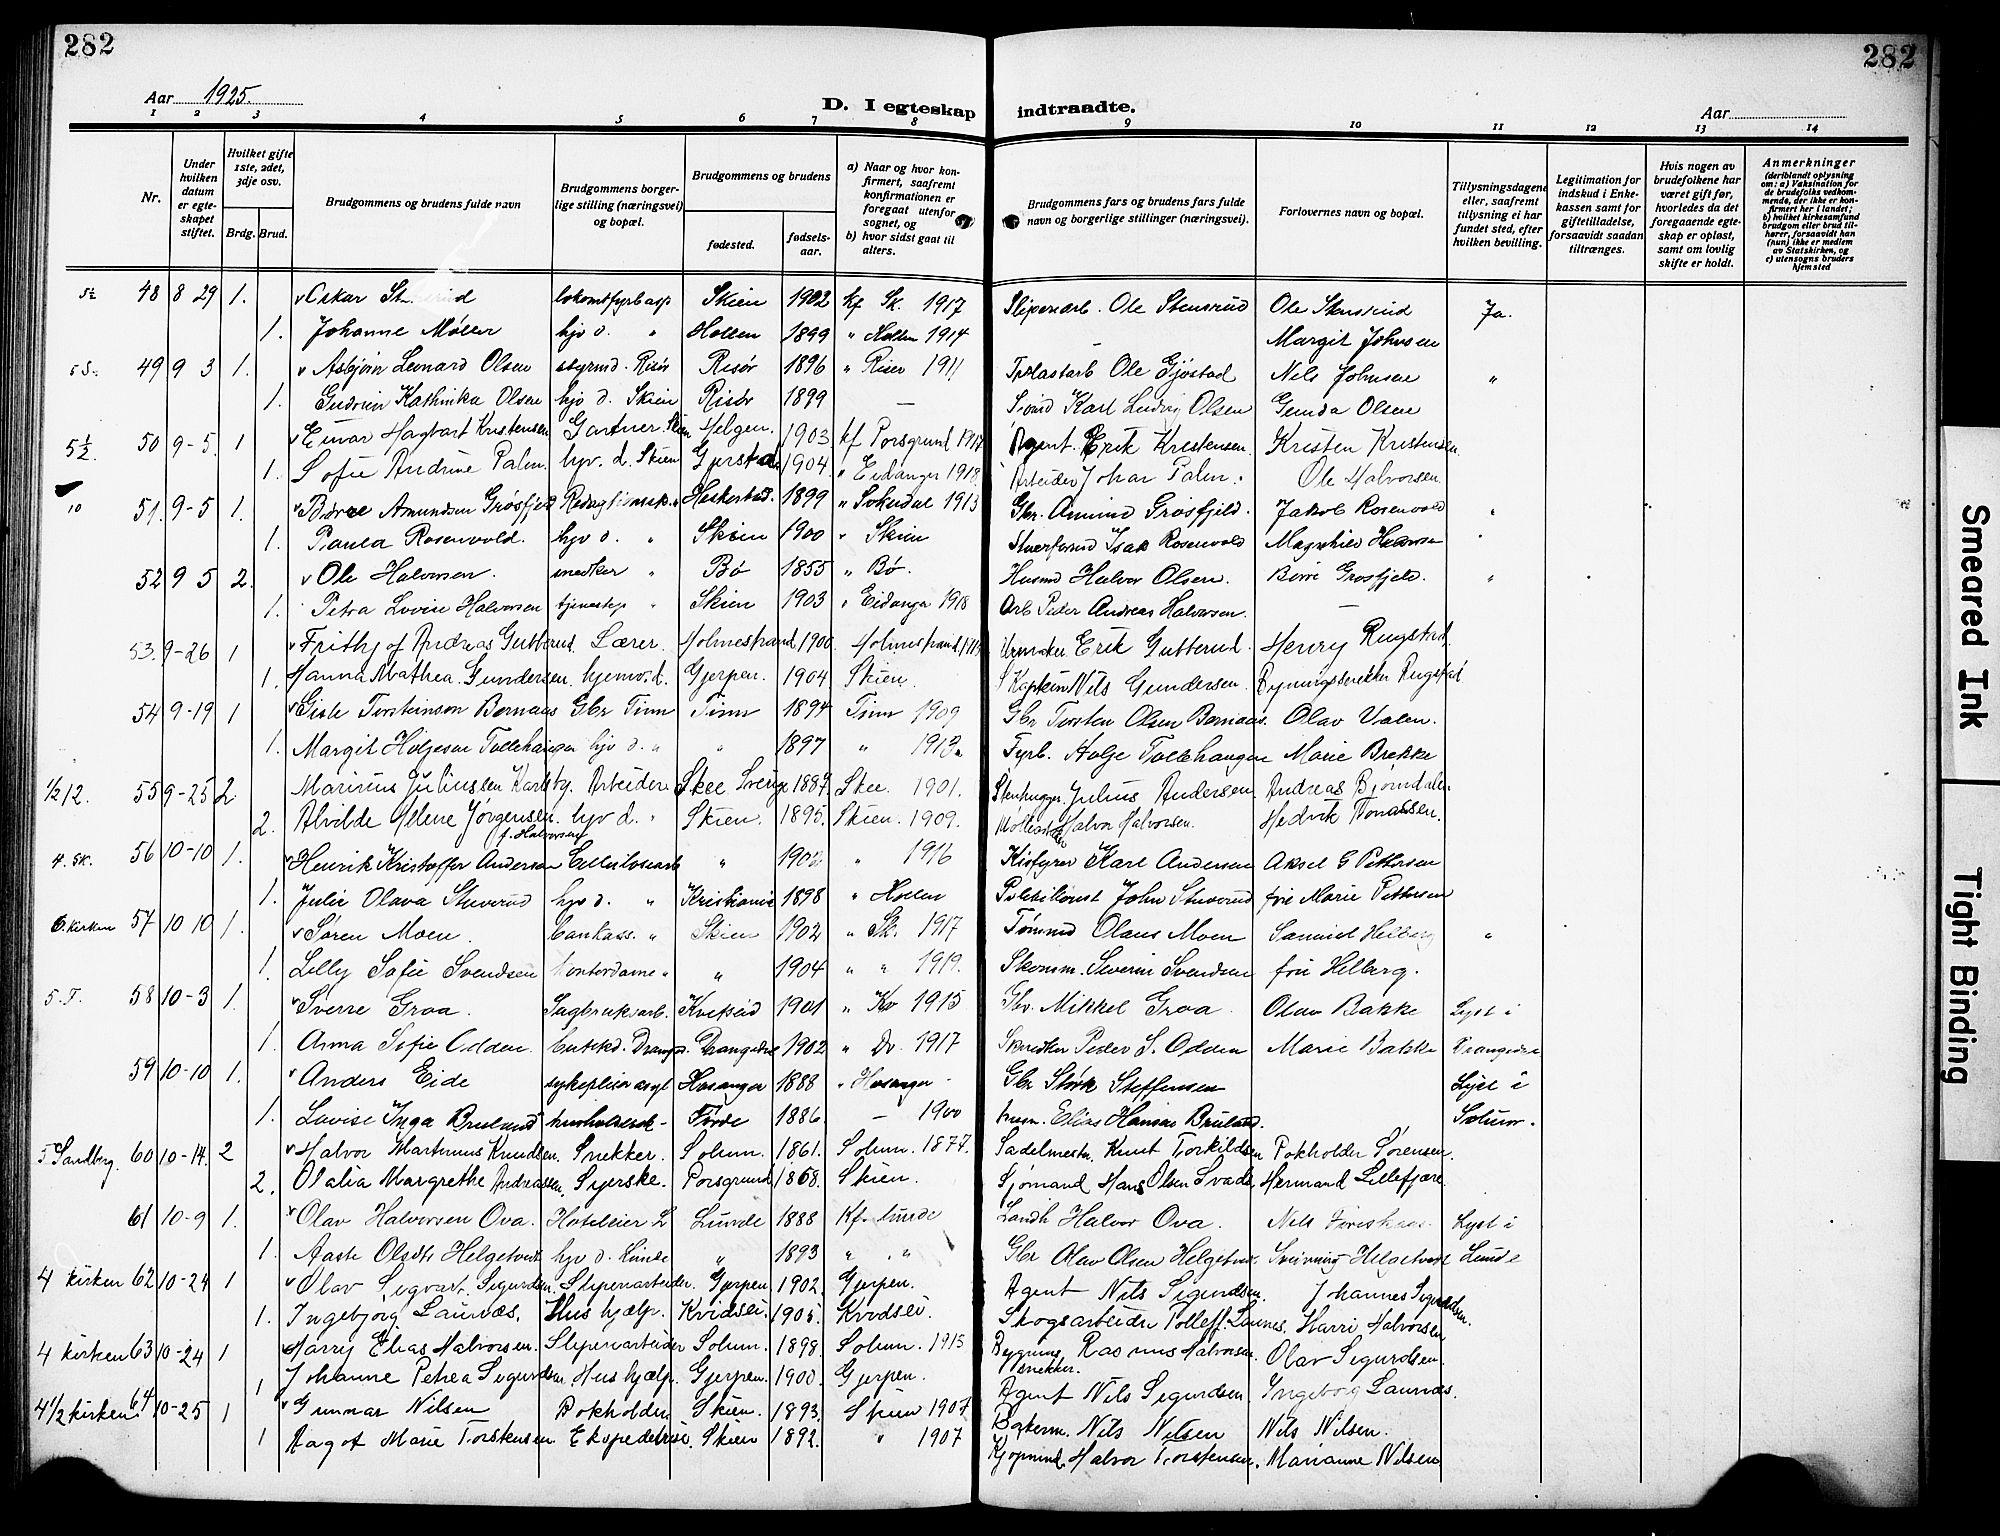 282
282
Aar 1925.
D. I egteskap indtraadte.
Aar
1 2 3 4 5 6 7 8 9 10 11 12 13 14
Nr.
Under hvilken datum er egteskapet stiftet.
Hvilket gifte 1ste, 2det, 3dje osv.
Brdg. Brud.
Brudgommens og brudens fulde navn
Brudgommens borgerlige stilling (næringsvei) og bopæl.
Brudgommens og brudens
fødested.
fødselsaar.
a) Naar og hvor konfirmert, saafremt konfirmationen er foregaat utenfor sognet, og b) hvor sidst gaat til alters.
Brudgommens fars og brudens fars fulde navn og borgerlige stillinger (næringsvei).
Forlovernes navn og bopæl.
Tillysningsdagene eller, saafremt tillysning ei har fundet sted, efter hvilken bevilling.
Legitimation for indskud i Enkekassen samt for giftetilladelse, forsaavidt saadan tiltrænges.
Hvis nogen av brudefolkene har været gift før, hvorledes da det foregaaende egteskap er opløst, samt om lovlig skifte er holdt.
Anmerkninger (deriblandt oplysning om: a) Vaksination for de brudefolks vedkommende, der ikke er konfirmert her i landet; b) hvilket kirkesamfund brudgom eller brud tilhører, forsaavidt han (hun) ikke er medlem av Statskirken, og c) utensogns bruders hjemsted
48 8 29 1. Oskar Skien 1902 kf Sk. 1917 Sliperiarb. Ole Stensrud Ole Stensrud Ja.
1. Johanne Møller hjv d. " Hollen 1899 " Hollen 1914 – Margit Johnsen
49 9 3 1. Asbjørn Leonard Olsen styrmd. Risør Risør 1896 " Risør 1911 Ole Gjøstad Nels Johnsen "
1. Gudrun Kathinka Olsen hjv d. Skien Risør 1899 – Karl Ludvig Olsen Gunda Olsen
5½ 50 9-5. 1 Einar Hagbart Kristensen Gartner. Skien Helgen. 1903 kf Porsgrund 1917 Agent. Erik Kristensen. Kristen Kristensen.
1. Sofie Andrine Palen. hjv. d. Skien Gjerstad 1904. " Eidanger 1918. Arbeider Johan Palen. Ole Halvorsen.
10 51. 9-5 1. Børre Amundsen Grøsfjeld Heskestad. 1899 " Sokndal 1913 Gbr. Amund Grøsfjeld. Jakob Rosenvold "
1. Paula Rosenvold. hjv d. " Skien 1900 " Skien Isak Rosenvold Magnhild Hansen "
52 9 5 2. Ole Halvorsen. snedker " Bø 1855 " Bø. Husmd Halvor Olsen. Børre Grøsfjeld. "
1. Petra Lovise Halvorsen tjenestep " Skien 1903 " Eidanger 1918 Arb Peder Andreas Halvorsen –
53. 9-26 1 Frithjof Andreas Gutterud. Lærer. Holmestrand 1900 Holmestrand Urmaker Erik Gutterud. Henry Rugstad.
1. Hanna Mathea Gundersen. hjemv. d. Gjerpen. 1904. Skien. Kaptein Nils Gundersen. Bygningssnekker Rugstad
54 9-19 1 Gisle Torsteinson Bernaas Gbr Tinn Tinn 1894 Tinn 1909 Gbr Torsten Olsen Bernaas. Olav Valen.
1. Margit Holjesen Tollehaugen hjv d. " " 1897 " 1913. Fyrb. Holje Tollehaugen Marie Brekke
1/2 12. 55 9-25 2 Marinius Juliussen Karlsby. Arbeider Skee Sverige 1887. Skee. 1901. Stenhugger. Julius Andersen. Andreas Bjørndalen.
2. Alvilde Helene Jørgensen. f. Halvorsen hjv d. " Skien. 1895. Skien. 1909. Halvor Halvorsen. Hedvik Tomassen.
4. Sk. 56 10-10 1. Henrik Kristoffer Andersen Cellulosearb " " 1916 Kisfyrer Karl Andersen Aksel G Pettersen
1. Julie Olava Stuverud hjv d. " Kristiania 1898 " Hollen John Stuverud fru Marie Pettersen
6. kirken 57 10 10 1. Søren Moen. bankass. " Skien 1902 " Sk. 1917 Tømmd Olaus Moen Samuel Helberg "
1. Lilly Sofie Svendsen kontordame " " 1904 " " 1919. Skomm. Severin Svendsen fru Helberg.
5. T. 58 10-3 1. Sverre Groa. Sagbruksarb. Kviteseid 1901 " Kv 1915 Gbr. Mikkel Groa. Olav Bakke Lyst i
1. Anna Sofie Odden. Drangedal 1902 " Dr. 1917 Peder S. Odden Marie Bakke Drangedal
59 10-10 1. Anders Eide sykepleier asyl Hosanger 1888 " Hosanger – Gbr Størk Steffensen Lyst i
1. Lovise Inga Bruland Førde 1886. – 1900 Elias Hansen Bruland. Solum.
5 Sandberg. 60 10-14. 2 Halvor Martinius Knudsen. Snekker. Solum. 1861. Solum. 1877. Sadelmestr. Knut Torkildsen Bokholder Sørensen.
2. Olalia Margrethe Andreassen. Syerske. Porsgrund 1868. Skien. Sjømand Hans Olsen Svada. Hermand Lillefjære
61 10-9 1. Olav Halvorsen Ova. Hoteleier L Lunde 1888 Kf. Lunde Landh Halvor Ova. Nils Lyst i
1. Aaste Olsdt Helgetveit hjv d. Lunde " 1893 " " Gbr Olav Olsen Helgetveit. Helgetveit Lunde
4 kirken 62 10-24 1 Olav Sigvart Sigurdsen. Sliperiarbeider. Gjerpen 1902. Gjerpen. Agent Nils Sigurdsen. Johannes Sigurdsen.
1. Ingebjørg Laurnæs. Hushjælp. Kvidsei. 1905. Kvidsei. Skogsarbeider Tolleff. Laurnes. Harri Halvorsen
4 kirken 63 10-24 1 Harry Elias Halvorsen. Sliperiarbeider Solum. 1898. Solum. 1913 Bygningssnekker. Rasmus Halvorsen. Olav Sigurdsen.
1 Johanne Petrea Sigurdsen. Hushjælp. Gjerpen. 1900. Gjerpen. Agent Nils Sigurdsen. Ingeborg Laurnæs.
4 1/2 kirken 64 10-25 1 Gunnar Nilsen Bokholder Skien. 1893. Skien 1907. Nils Nilsen Nils Nilsen.
1 Aagot Marie Torstensen. Ekspeditrise. Skien 1892. " 1907 Kjøpmnd. Halvor Torstensen. Marianne Nilsen
Smeared Ink
Tight Binding